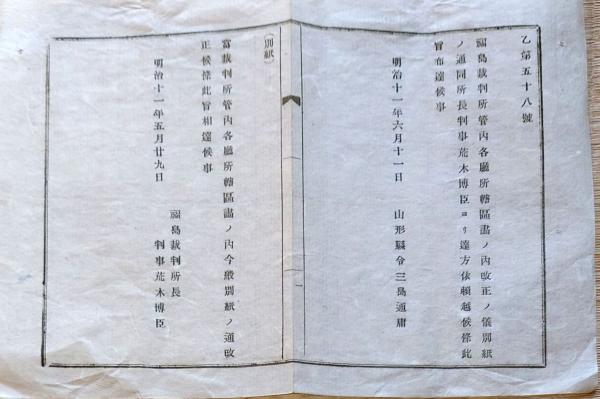 乙第五十八號
福島裁判所管内各廳所轄區畫ノ内改正ノ儀別紙
ノ通同所長判事荒木博臣ヨリ達方依賴越候條此
旨布達候事
明治十一年六月十一日
山形縣令三島通庸
（別紙）
當裁判所管内各廳所轄區畫ノ内今般別紙ノ通改
正候條此旨相達候事
明治十一年五月廿九日
福島裁判所長
判事荒木博臣